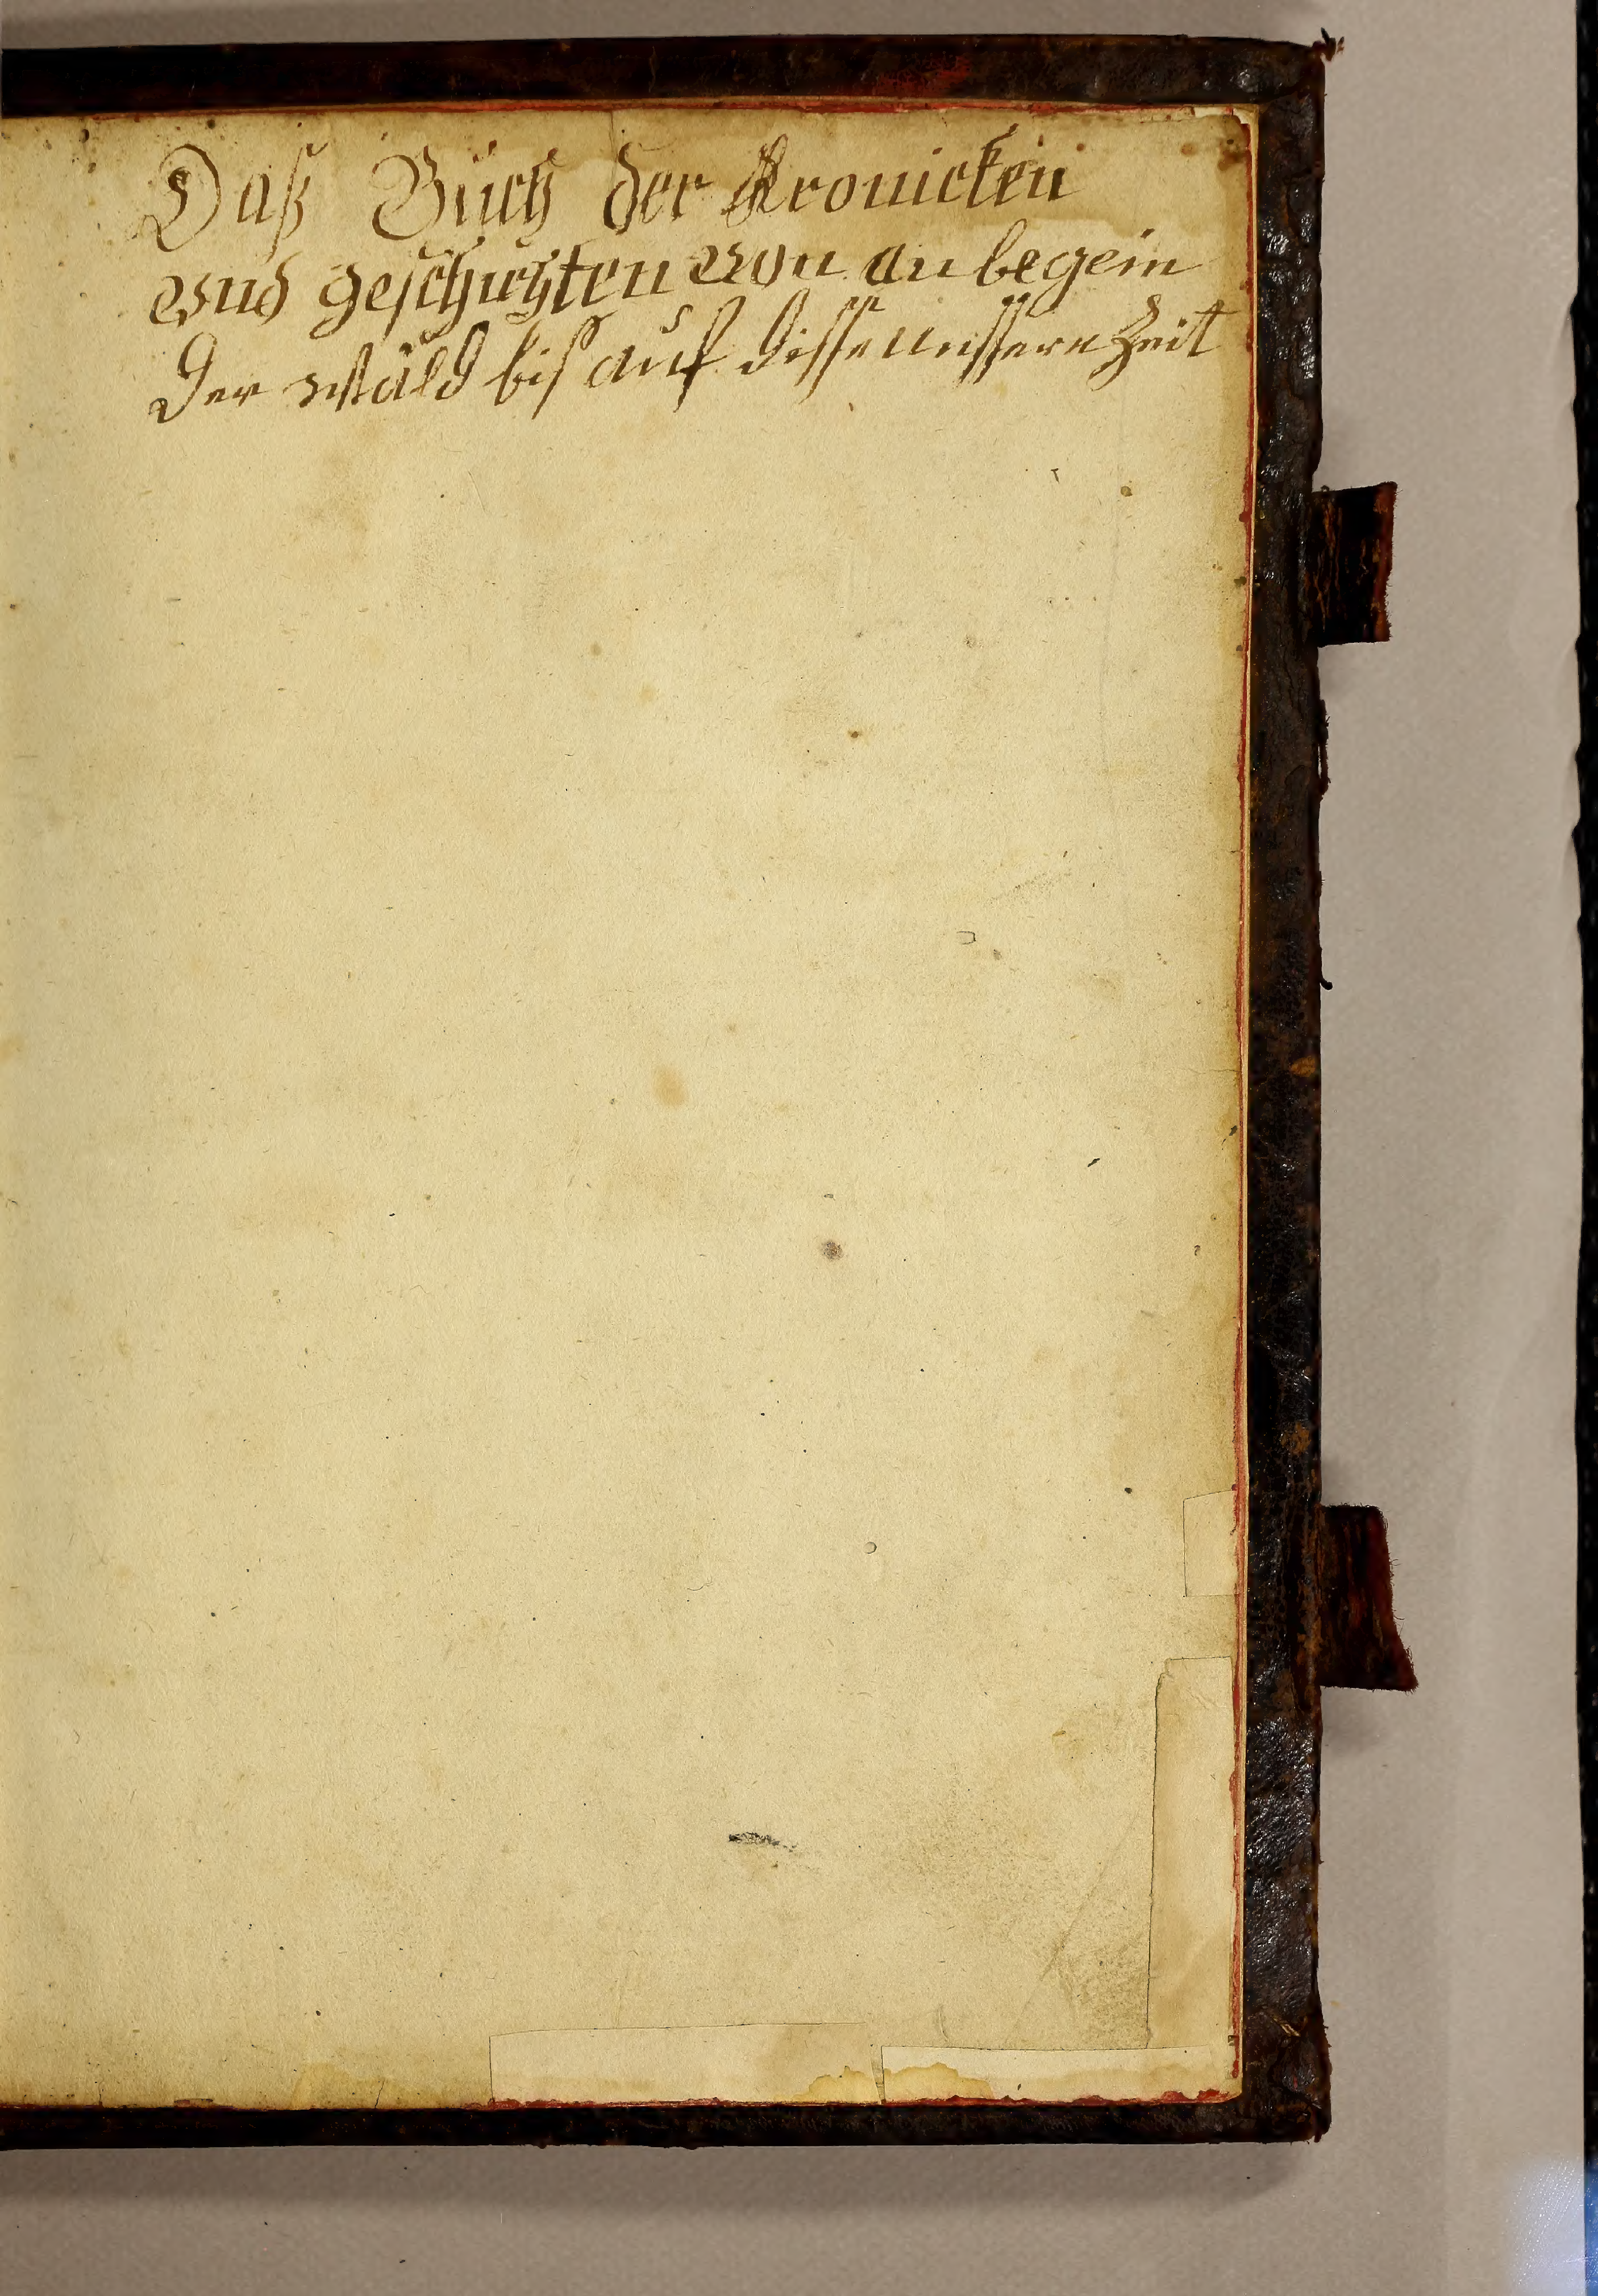 Daß Buch der Kronicken
vnd geschichten von an begein
der wäld biß auf disse unssere Zeit